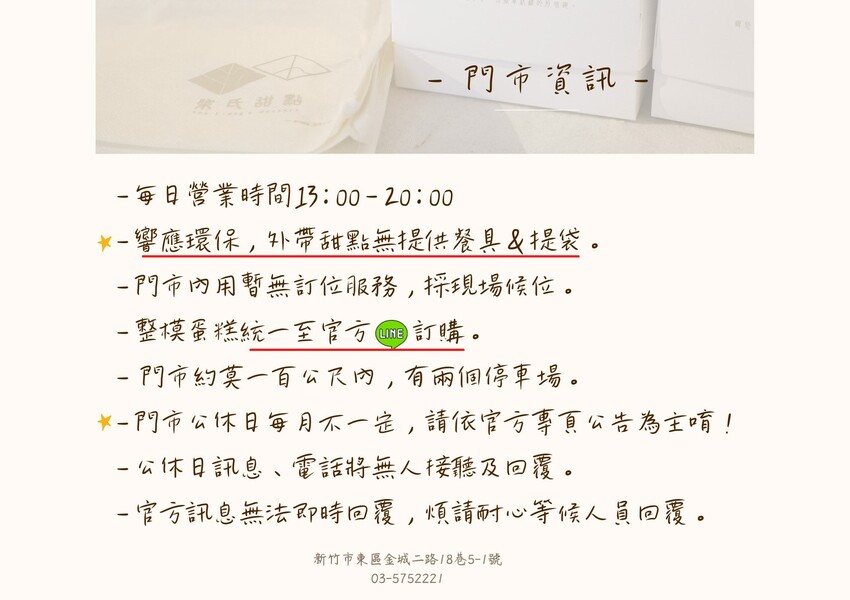 葉氏甜點
- 門市資訊 -
- 每日營業時間13:00-20:00
- 響應環保，外帶甜點無提供餐具&提袋。
- 門市內用暫無訂位服務，採現場候位。
- 整模蛋糕統一至官方LINE訂購。
- 門市約莫一百公尺內，有兩個停車場。
- 門市公休日每月不一定，請依官方專頁公告為主唷！
- 公休日訊息、電話將無人接聽及回覆。
- 官方訊息無法即時回覆，煩請耐心等候人員回覆。
新竹市東區金城二路18巷5-1號
03-5752221